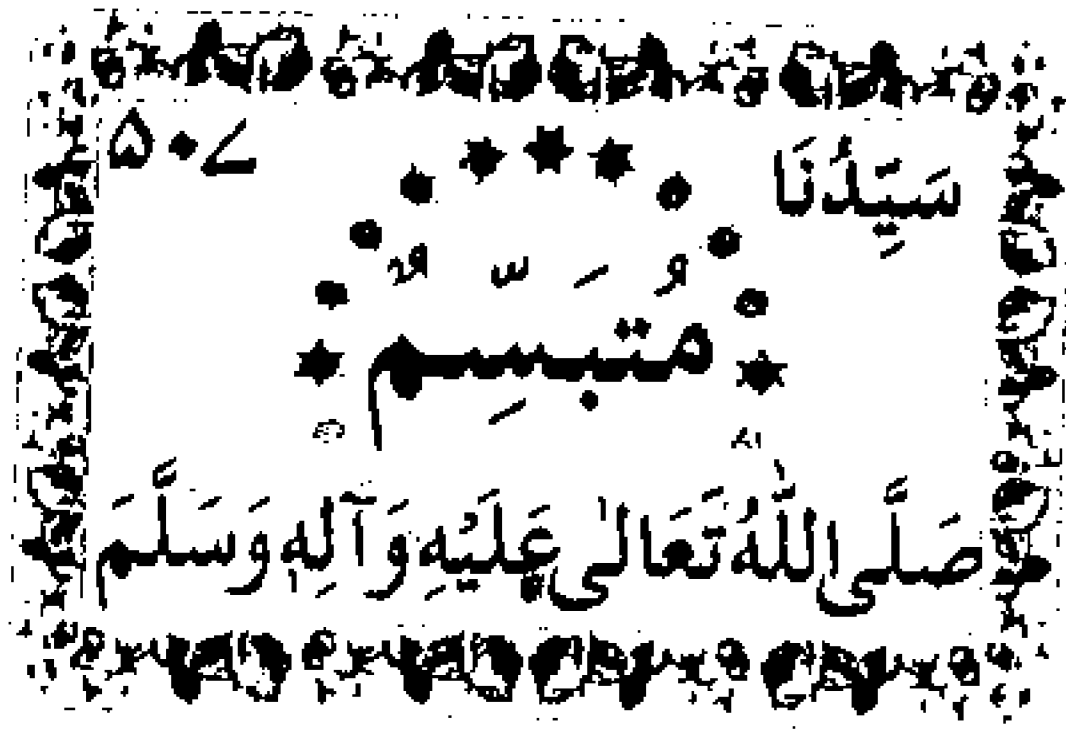 سَيِّدُنَا ۵۰۷
مُتَبَسِّمٌ
صَلَّى اللّٰهُ تَعَالٰى عَلَيْهِ وَآلِهٖ وَسَلَّمَ